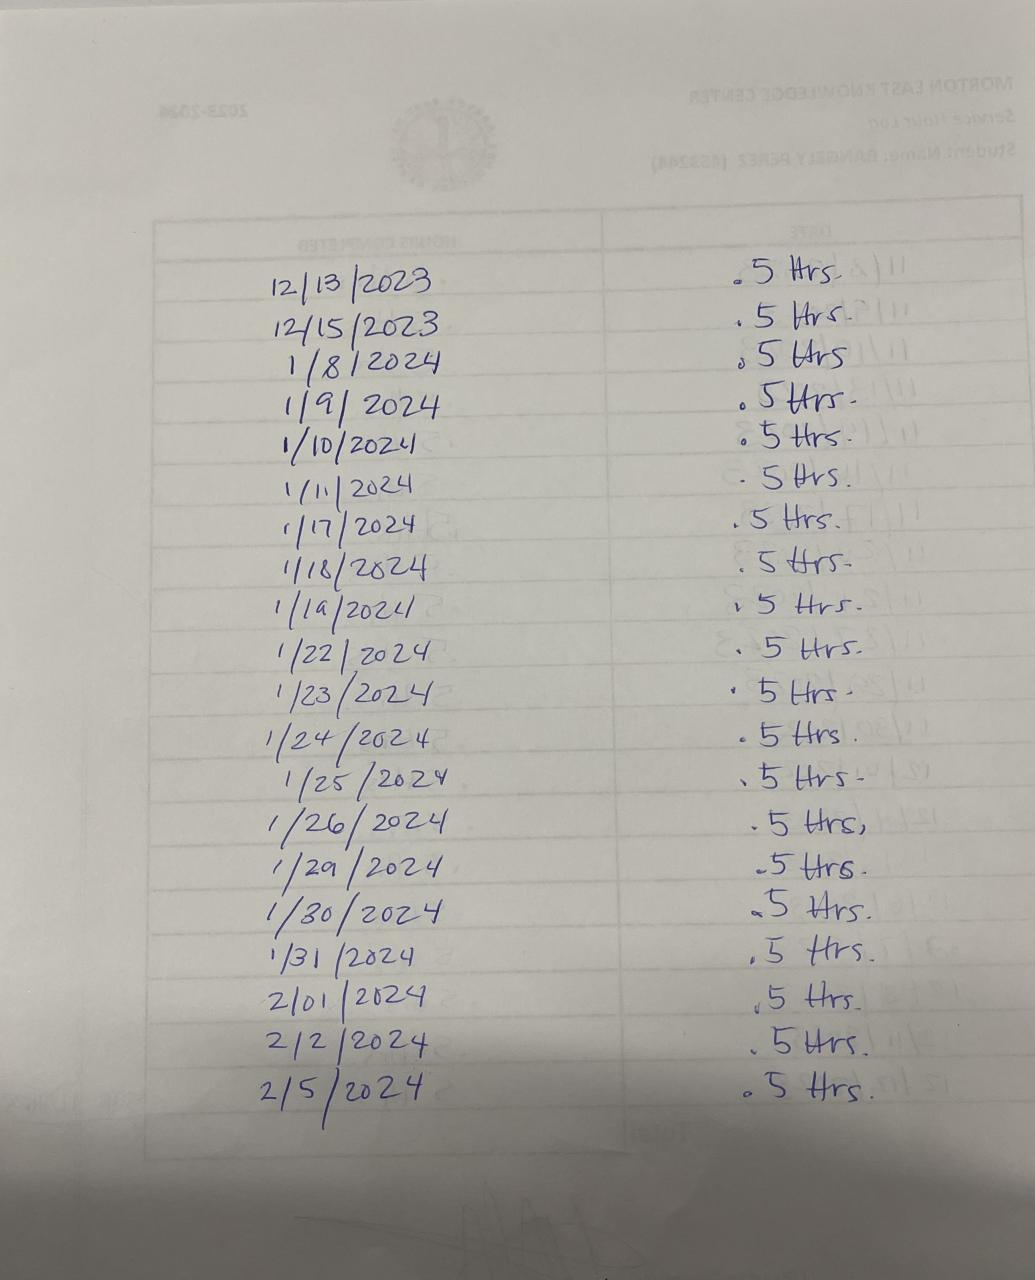 12/13/2023 .5 Hrs.
12/15/2023 .5 Hrs.
1/8/2024 .5 Hrs
1/9/2024 .5 Hrs.
1/10/2024 .5 Hrs.
1/11/2024 .5 Hrs.
1/17/2024 .5 Hrs.
1/18/2024 .5 Hrs.
1/19/2024 .5 Hrs.
1/22/2024 .5 Hrs.
1/23/2024 .5 Hrs.
1/24/2024 .5 Hrs.
1/25/2024 .5 Hrs.
1/26/2024 .5 Hrs,
1/29/2024 .5 Hrs.
1/30/2024 .5 Hrs.
1/31/2024 .5 Hrs.
2/01/2024 .5 Hrs.
2/2/2024 .5 Hrs.
2/5/2024 .5 Hrs.